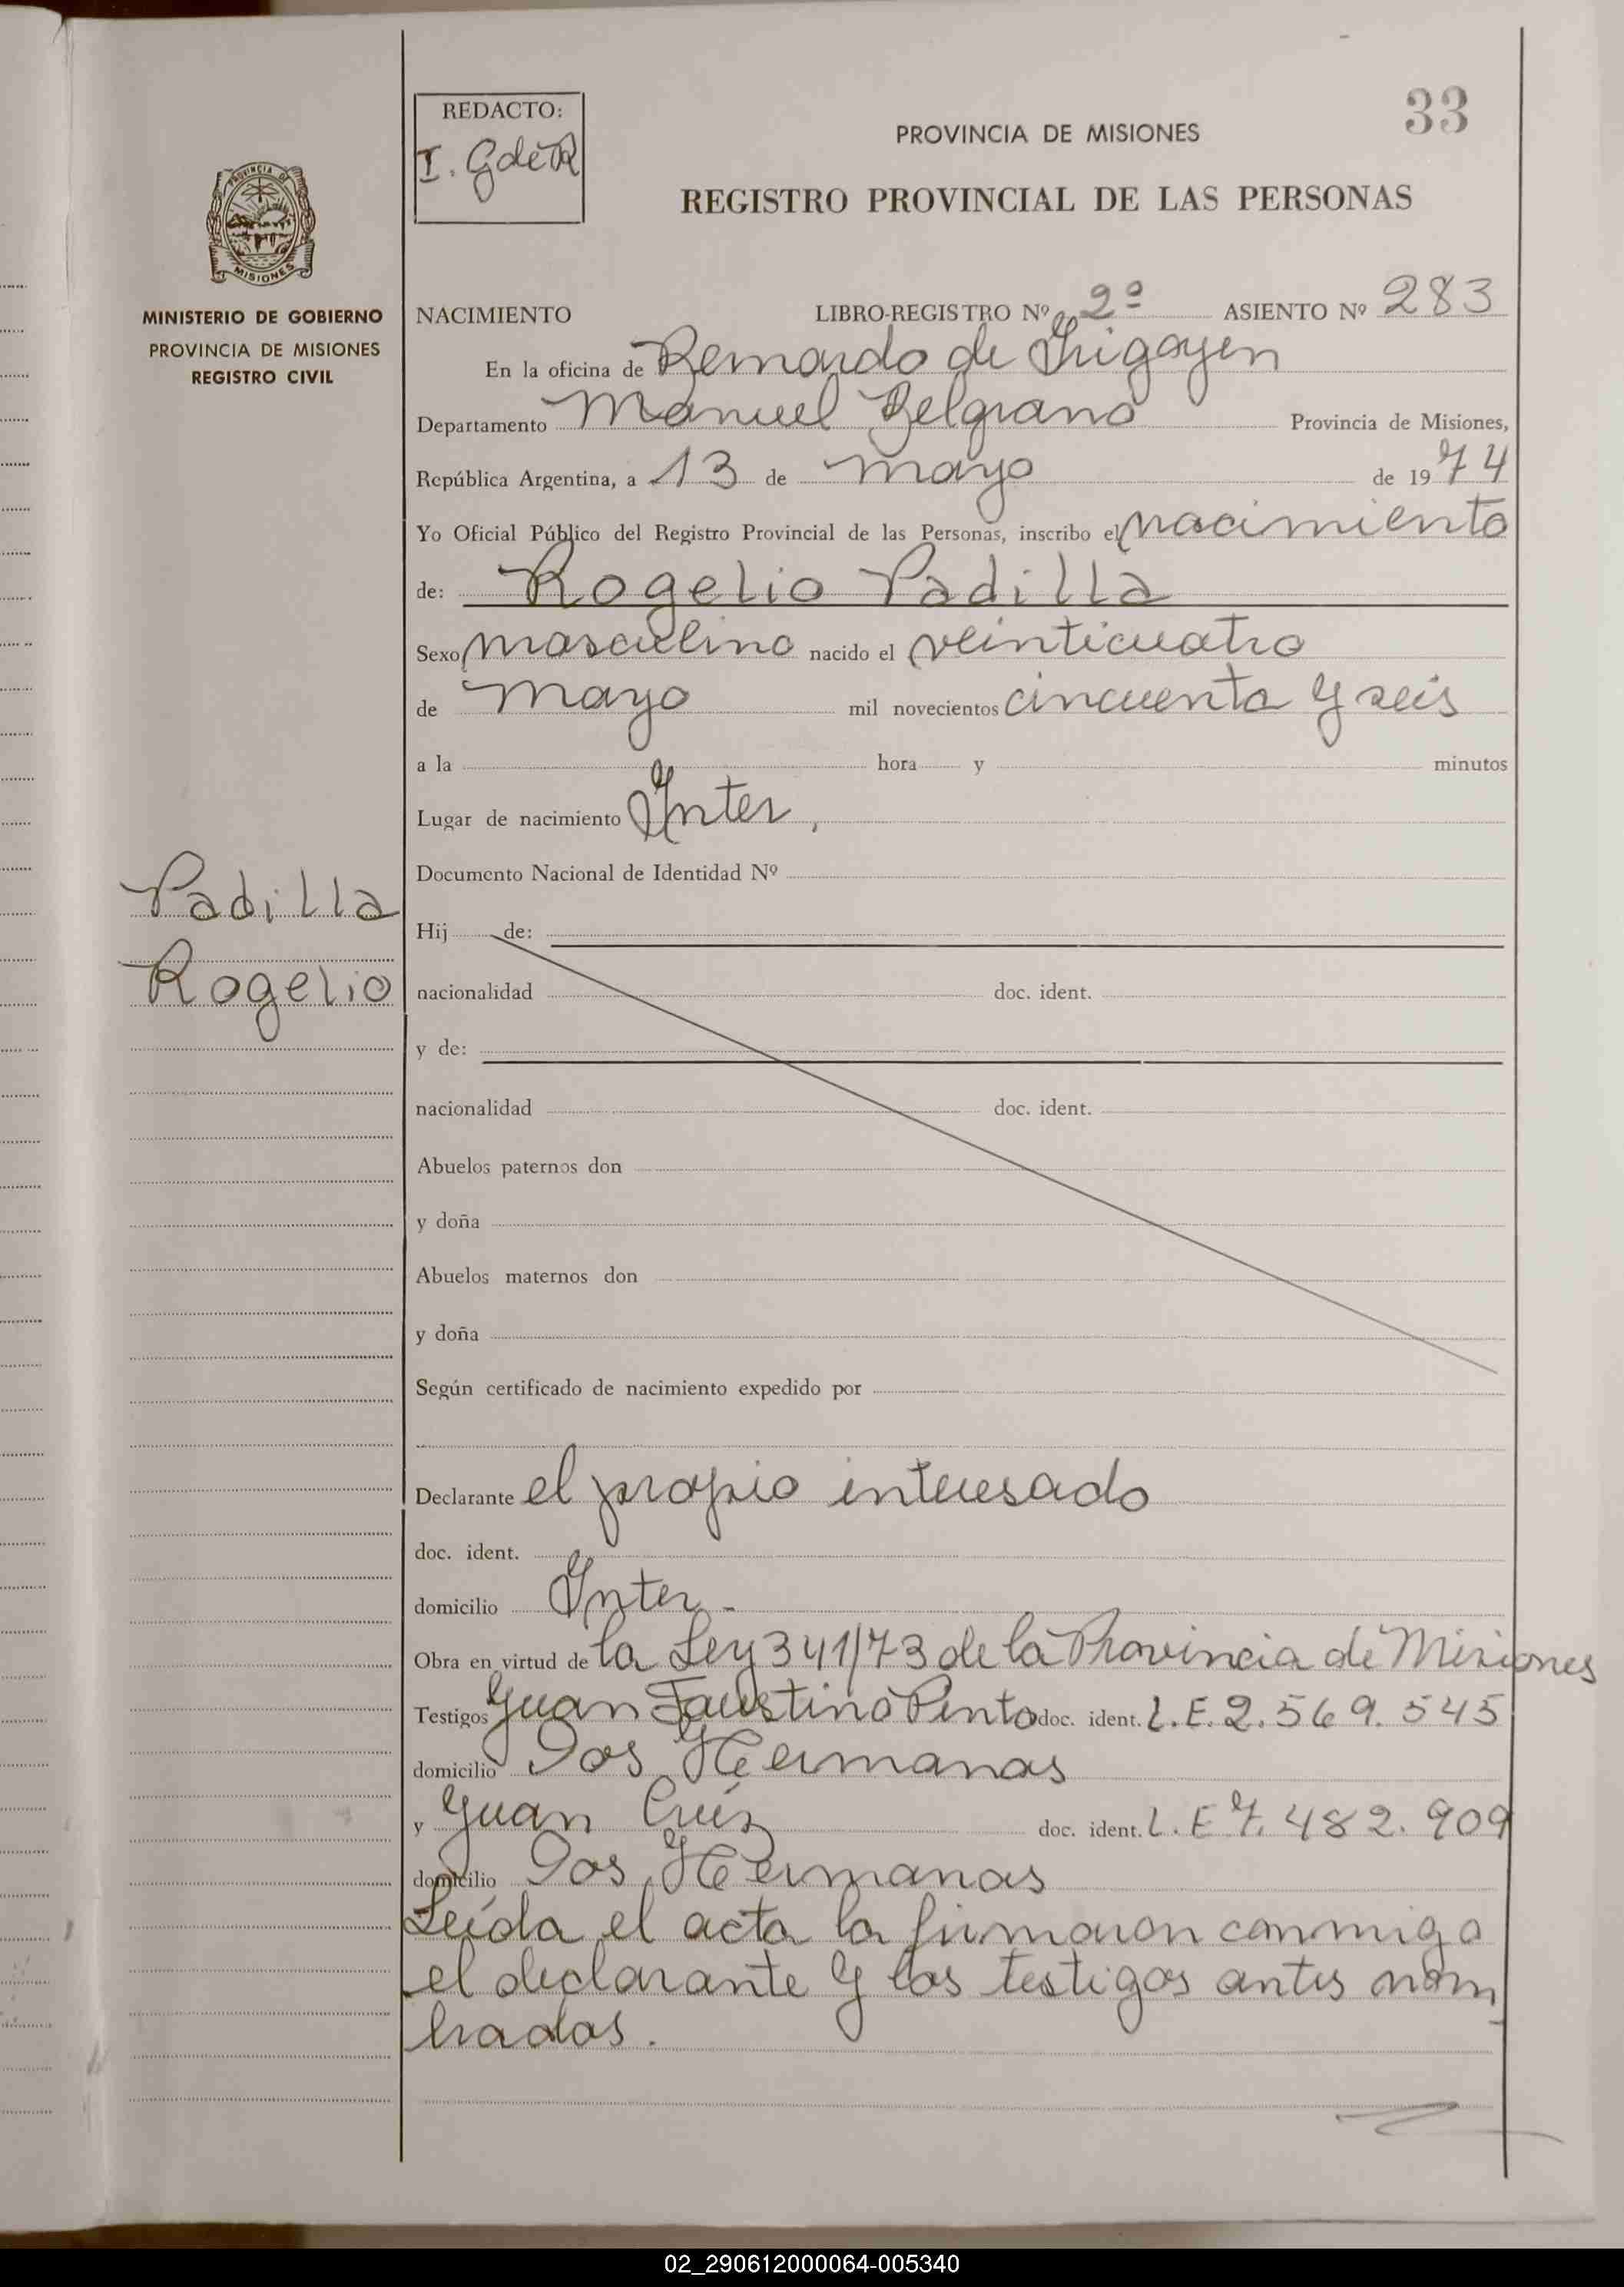 33
REDACTO:
I. GdeR
PROVINCIA DE MISIONES
REGISTRO PROVINCIAL DE LAS PERSONAS
PROVINCIA DE
MISIONES
MINISTERIO DE GOBIERNO
PROVINCIA DE MISIONES
REGISTRO CIVIL
NACIMIENTO LIBRO-REGISTRO Nº 2º ASIENTO Nº 283
En la oficina de Bernardo de Irigoyen
Departamento Manuel Belgrano Provincia de Misiones,
República Argentina, a 13 de mayo de 1974
Yo Oficial Público del Registro Provincial de las Personas, inscribo el nacimiento
de: Rogelio Padilla
Sexo masculino nacido el veinticuatro
de mayo mil novecientos cincuenta y seis
a la hora y minutos
Lugar de nacimiento Inter,
Documento Nacional de Identidad Nº
Padilla
Rogelio
Hij de:
nacionalidad doc. ident.
y de:
nacionalidad doc. ident.
Abuelos paternos don
y doña
Abuelos maternos don
y doña
Según certificado de nacimiento expedido por
Declarante el propio interesado
doc. ident.
domicilio Inter -
Obra en virtud de la Ley 341/73 de la Provincia de Misiones
Testigos Juan Faustino Pinto doc. ident. L.E. 2.569.545
domicilio Dos Hermanas
y Juan Cruz doc. ident. L.E 7.482.909
domicilio Dos Hermanas
Leída el acta la firmaron conmigo
el declarante y los testigos antes nom
brados.
02_290612000064-005340